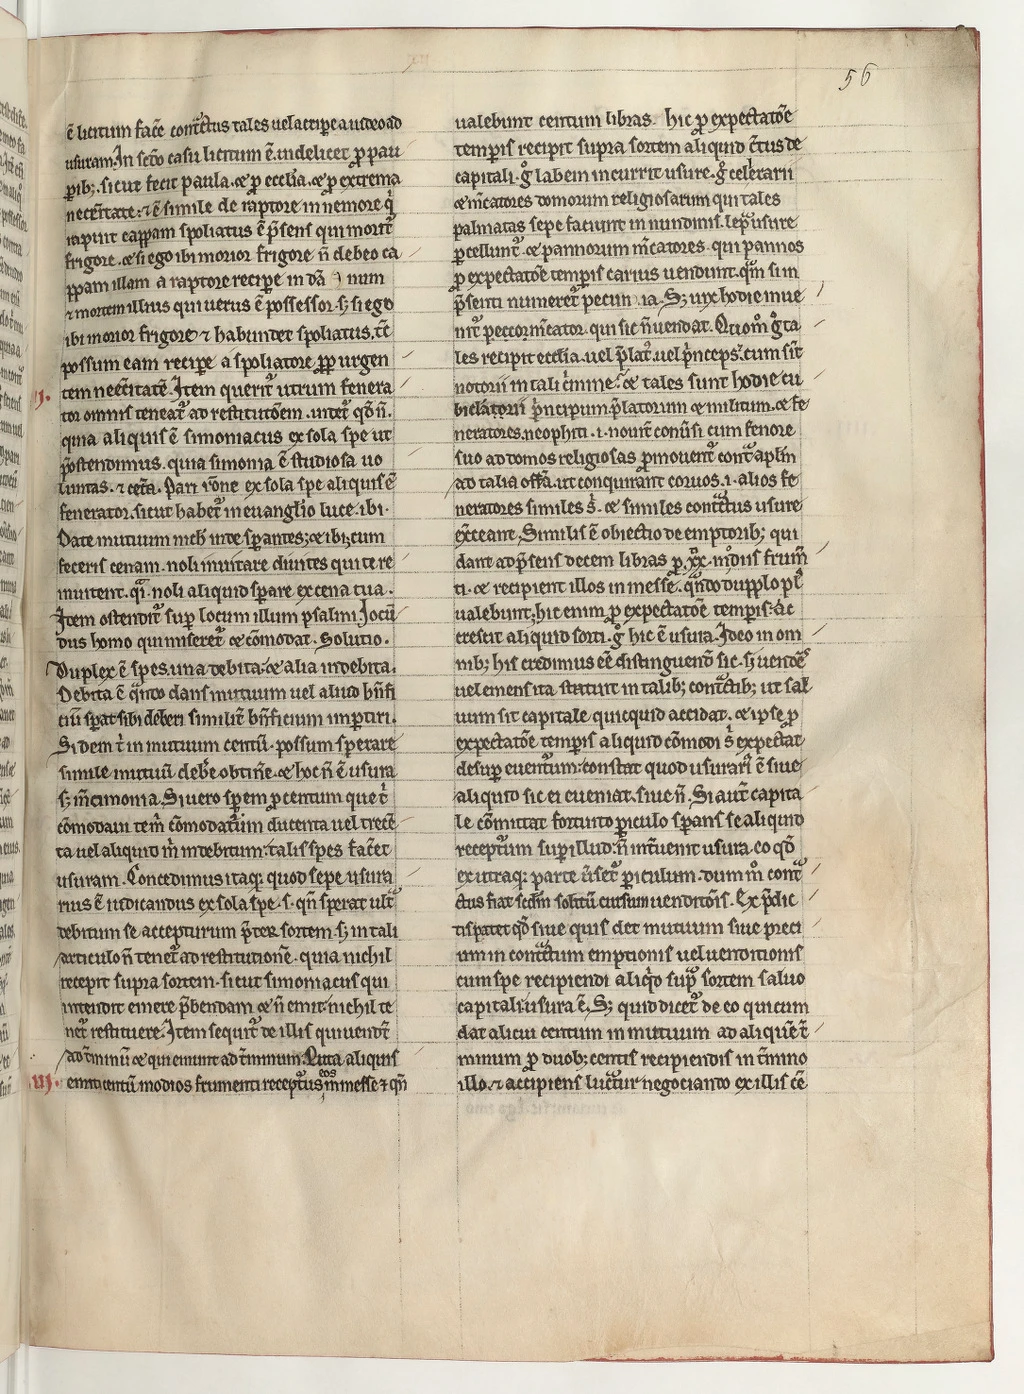 56
ē licitum facē cont̄ctus tales uel accipe audeo ad
usuram. In sc̄do casu licitum ē. uidelicet p̱ pau
p̱ib; . sicut fecit paula . ⁊ p̱ ecclīa . ⁊ p̱ extrema
necc̄itate : ⁊ ē simile de raptore in nemore q̇
rapuit cappam spoliatus ē p̄sens qui morit᷑
frigore . ⁊ si ego ibi morior frigore n̄ debeo ca
p̱pam illam a raptore recipe in dā num
⁊ mortem illius qui uerus ē possessor . s; si ego
ibi morior frigore ⁊ habundet spoliatus . t̄c
possum eam recipe a spoliatore p̱p urgen
tem necc̄itatē . Item querit᷑ utrum fenera
ij.
tor omnis teneat᷑ ad restitutōem . uidet᷑ qd̄ n̄ .
quia aliquis ē simoniacus ex sola spe ut
p̄ostendimus . quia simonia ē studiosa uo
luntas . ⁊ cet̄a . Pari rōne ex sola spe aliquis ē
fenerator . sicut habet᷑ in euanglīo luce . ibi .
Date mutuum nichil inde sp̱antes ; ⁊ ibi ; cum
feceris cenam . noli inuitare diuites qui te re
inuitent . q̄i . noli aliquid sp̱are ex cena tua .
Item ostendit᷑ sup̱ locum illum psalmi . Iocū
dus homo qui miseret᷑ ⁊ cōmodat . Solutio .
Duplex ē spes . una debita ⁊ alia indebita .
Debita ē qn̄do dans mutuum uel aliud bn̄fi
ciū sp̱at sibi deberi similit᷑ bn̄ficium imp̱tiri .
Si dem t̄ in mutuum centū . possum sp̱are
simile mutuū debere obtinē . ⁊ hoc n̄ ē usura
s; m̄cimonia . Si uero sp̱em p̱ centum que t̄
cōmodaui tem̄ cōmodat̄um ducenta uel trecē
ta uel aliquid m̄ indebitum : talis spes facēt
usuram . Concedimus itaq; quod sepe usura
rius ē iudicandus ex sola spe . s . qn̄ sperat ult᷑
debitum se accepturum p̄ter sortem . s; in tali
articulo n̄ tenet᷑ ad restitutionē . quia nichil
recepit supra sortem . sicut simoniacus qui
intendit emere p̄bendam ⁊ n̄ emit . nichil te
net᷑ restituere . Item sequit᷑ de illis qui uendt̄
ad t̄minū ⁊ qui emunt ad t̄minum . Puta aliquis
iij.
emit centū modios frumenti recept᷑us eos in messe ⁊ qn̄
ualebunt centum libras . hic p̱ expectatōē
temp̱is recipit supra sortem aliquid c̄tus de
capitali . ḡ labem incurrit usure . ḡ celerarii
⁊ m̄catores domorum religiosarum qui tales
palmatas sepe faciunt in nundinis . lep̱ usure
p̱cellunt᷑ . ⁊ pannorum m̄catores . qui pannos
p̱ expectatōe temp̱is carius uendunt . qm̄ si in
p̄senti numeret᷑ pecunia . S; uix hodie inue
nit᷑ peccor m̄cator . qui sic n̄ uendat . Quom̄ ḡ ta
les recipit ecclīa . uel p̄lat᷑ . uel p̄nceps . cum sīt
notorii in tali c̄mine . ⁊ tales sunt hodie cu
bicl̄atorii p̄ncipum . p̄latorum ⁊ militum . ⁊ fe
neratores . neophiti . i . nouit᷑ conūsi cum fenore
suo ad domos religiosas p̱mouent᷑ cont̄ aplm̄
ad talia offā . ut conquirant coruos . i . alios fe
neratores similes s̄ . ⁊ similes cont̄ctus usure
exceant . Similis ē obiectio de emptorib; qui
dant ad p̄sens decem libras p̱ xx . modiis frum̄
ti . ⁊ recipient illos in messe . qn̄do dupplo pl᷑
ualebunt ; hic enim p̱ expectatōē temp̱is ac
crescit aliquid sorti . ḡ hic ē usura . Ideo in om
nib; his credimus eē distinguendū sic . si uendēs
uel emens ita statuit in talib; cont̄ctib; ut sal
uum sit capitale quicquid accidat . ⁊ ipse p̱
expectatōē temp̱is aliquid cōmodi s̄ expectat
desup̱ euent᷑um : constat quod usurari᷑ ē siue
aliquid sic ei eueniat . siue n̄ . Si aut̄ capita
le cōmittat fortuito p̱iculo sp̱ans se aliquid
recept᷑um sup̱ illud : n̄ int̄uenit usura . eo qd̄
ex utraq; parte ūset᷑ p̱iculum . dum m̊ cont̄
ctus fiat scdm̄ solitū cursum uenditōis . Ex p̄dic
tis patet qd̄ siue quis det mutuum siue preci
um in cont̄ctum emptionis uel uenditionis
cum spe recipiendi aliq̇d sup̄ sortem saluo
capitali : usura ē . S; quid dicet᷑ de eo qui cum
dat alicui centum in mutuum ad aliquē t̄
minum p̱ duob; centis recipiendis in t̄mino
illo . ⁊ accipiens lucrat᷑ur negociando ex illis cē